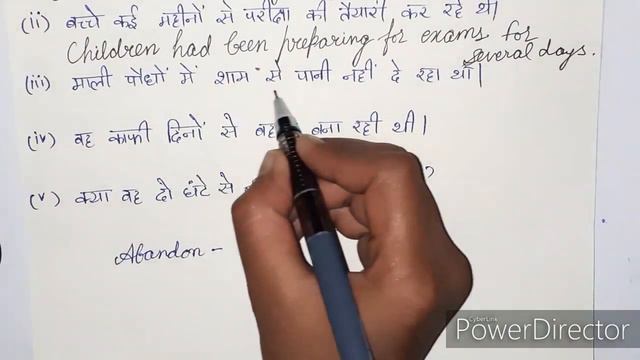 (ii) बच्चे कई महीनों से परीक्षा की तैयारी कर रहे थे।
Children had been preparing for exams for
several days.
(iii) माली पौधों में शाम से पानी नहीं दे रहा था।
(iv) वह काफी दिनों से बना रही थी।
(v) क्या वह दो घंटे से ?
Abandon -
CyberLink
PowerDirector